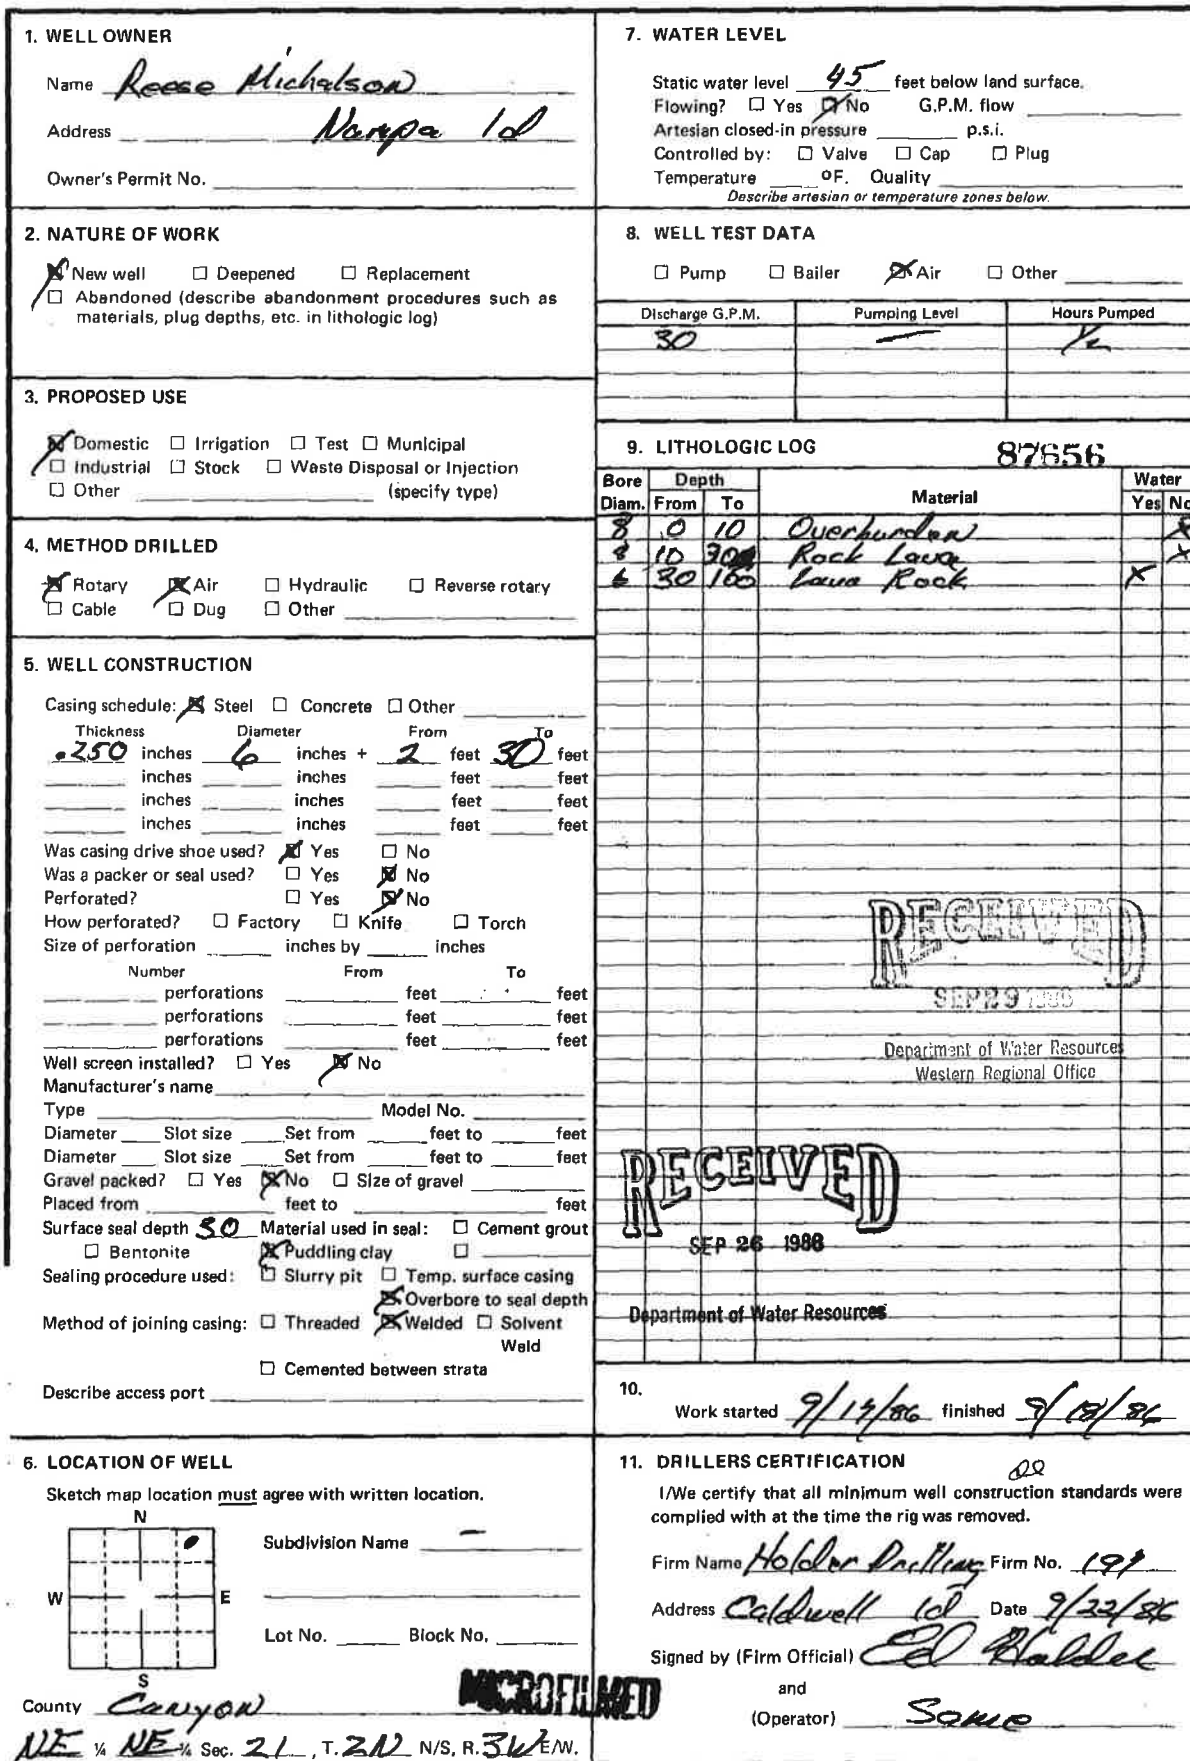 1. WELL OWNER
Name Reese Michalson
Address Nampa Id
Owner's Permit No.
2. NATURE OF WORK
☒ New well ☐ Deepened ☐ Replacement
☐ Abandoned (describe abandonment procedures such as
materials, plug depths, etc. in lithologic log)
3. PROPOSED USE
☒ Domestic ☐ Irrigation ☐ Test ☐ Municipal
☐ Industrial ☐ Stock ☐ Waste Disposal or Injection
☐ Other (specify type)
4. METHOD DRILLED
☒ Rotary ☒ Air ☐ Hydraulic ☐ Reverse rotary
☐ Cable ☐ Dug ☐ Other
5. WELL CONSTRUCTION
Casing schedule: ☒ Steel ☐ Concrete ☐ Other
Thickness Diameter From To
.250 inches 6 inches + 2 feet 30 feet
inches inches feet feet
inches inches feet feet
inches inches feet feet
Was casing drive shoe used? ☒ Yes ☐ No
Was a packer or seal used? ☐ Yes ☒ No
Perforated? ☐ Yes ☒ No
How perforated? ☐ Factory ☐ Knife ☐ Torch
Size of perforation inches by inches
Number From To
perforations feet feet
perforations feet feet
perforations feet feet
Well screen installed? ☐ Yes ☒ No
Manufacturer's name
Type Model No.
Diameter Slot size Set from feet to feet
Diameter Slot size Set from feet to feet
Gravel packed? ☐ Yes ☒ No ☐ Size of gravel
Placed from feet to feet
Surface seal depth 30 Material used in seal: ☐ Cement grout
☐ Bentonite ☒ Puddling clay ☐
Sealing procedure used: ☐ Slurry pit ☐ Temp. surface casing
☒ Overbore to seal depth
Method of joining casing: ☐ Threaded ☒ Welded ☐ Solvent
Weld
☐ Cemented between strata
Describe access port
6. LOCATION OF WELL
Sketch map location must agree with written location.
N
W E
S
Subdivision Name —
Lot No. Block No.
County Canyon
MICROFILMED
NE ¼ NE ¼ Sec. 21, T. 2N N/S, R. 3W E/W.
7. WATER LEVEL
Static water level 45 feet below land surface.
Flowing? ☐ Yes ☒ No G.P.M. flow
Artesian closed-in pressure p.s.i.
Controlled by: ☐ Valve ☐ Cap ☐ Plug
Temperature °F. Quality
Describe artesian or temperature zones below.
8. WELL TEST DATA
☐ Pump ☐ Bailer ☒ Air ☐ Other
Discharge G.P.M. Pumping Level Hours Pumped
30 — ½
9. LITHOLOGIC LOG 87656
Bore Depth Water
Diam. From To Material Yes No
8 0 10 Overburden X
8 10 30 Rock Lava X
6 30 160 Lava Rock X
RECEIVED
SEP 29 1986
Department of Water Resources
Western Regional Office
RECEIVED
SEP 26 1986
Department of Water Resources
10.
Work started 9/17/86 finished 9/18/86
11. DRILLERS CERTIFICATION
I/We certify that all minimum well construction standards were
complied with at the time the rig was removed.
Firm Name Holder Drilling Firm No.
Address Caldwell Id Date 9/22/86
Signed by (Firm Official) Ed Holder
and
(Operator) Same